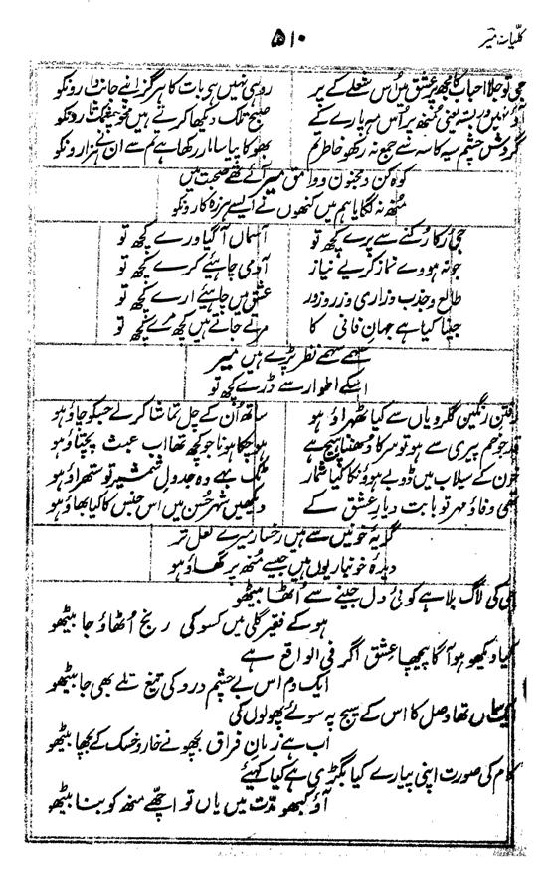 کلیات میر
۵۱۰
جی تو جلا احباب کا مجھ پر عشق میں اس شعلے کے پر
رو ہی نہیں ہی بات کا ہرگز اپنے جانبدارونکو
صبح تلک دیکھا کرتے ہیں
گردش چشم سیہ کاسہ سے جمع نہ رکھو خاطر تم
بھوکا پیاسا مار رکھا ہے تم سے ان نے ہزارونکو
کوہ کن و مجنون و وامق میر آئے تھے صحبت میں
منھ نہ لگایا ہم میں کنھوں نے ایسے ہرزہ کارونکو
جی رکا رکنے سے پرے کچھ تو
آسماں آ گیا ورے کچھ تو
جو نہ ہووے نماز کریے نیاز
آدمی چاہیئے کرے کچھ تو
طالع و جذب و زاری و زر و زور
عشق میں چاہیئے ارے کچھ تو
جینا کیا ہے جہان فانی کا
مرتے جاتے ہیں کچھ مرے کچھ تو
سہمے سہمے نظر پڑے ہیں میر
اسکے اطوار سے ڈرے کچھ تو
رفتن رنگین گلرویاں سے کیا ٹھہراؤ ہو
ساتھ ان کے چل تماشا کر لے جسکو چاؤ ہو
قد جو خم پیری سے ہو تو سر کا دھننا ہیچ ہے
ہو چکا ہونا جو کچھ تھا اب عبث پچتاؤ ہو
خون کے سیلاب میں ڈوبے ہوؤنکا کیا شمار
ٹک بہے وہ جدول شمشیر تو ستھراؤ ہو
تھی وفا و مہر تو بابت دیار عشق کے
دیکھیں شہر حسن میں اس جنس کا کیا بھاؤ ہو
گریۂ خونیں سے ہیں رخسار میرے لعل تر
دیدۂ خونبار یوں ہیں جیسے منھ پر گھاؤ ہو
جی کی لاگ بلا ہے کوئی دل جینے سے اٹھا بیٹھو
ہو کے فقیر گلی میں کسو کی رنج اٹھاؤ جا بیٹھو
کیا دیکھو ہو آگا پیچھا عشق اگر فی الواقع ہے
ایک دم اس بے چشم و رو کی تیغ تلے بھی جا بیٹھو
ایک سماں تھا وصل کا اس کے سیج پہ سوئے پھولوں کی
اب ہے زمان فراق بچھونے خار و خسک کے بچھا بیٹھو
کام کی صورت اپنی پیارے کیا بگڑی ہے کیا کہیئے
آؤ کبھو مدت میں یاں تو اچھے منھ کو بنا بیٹھو